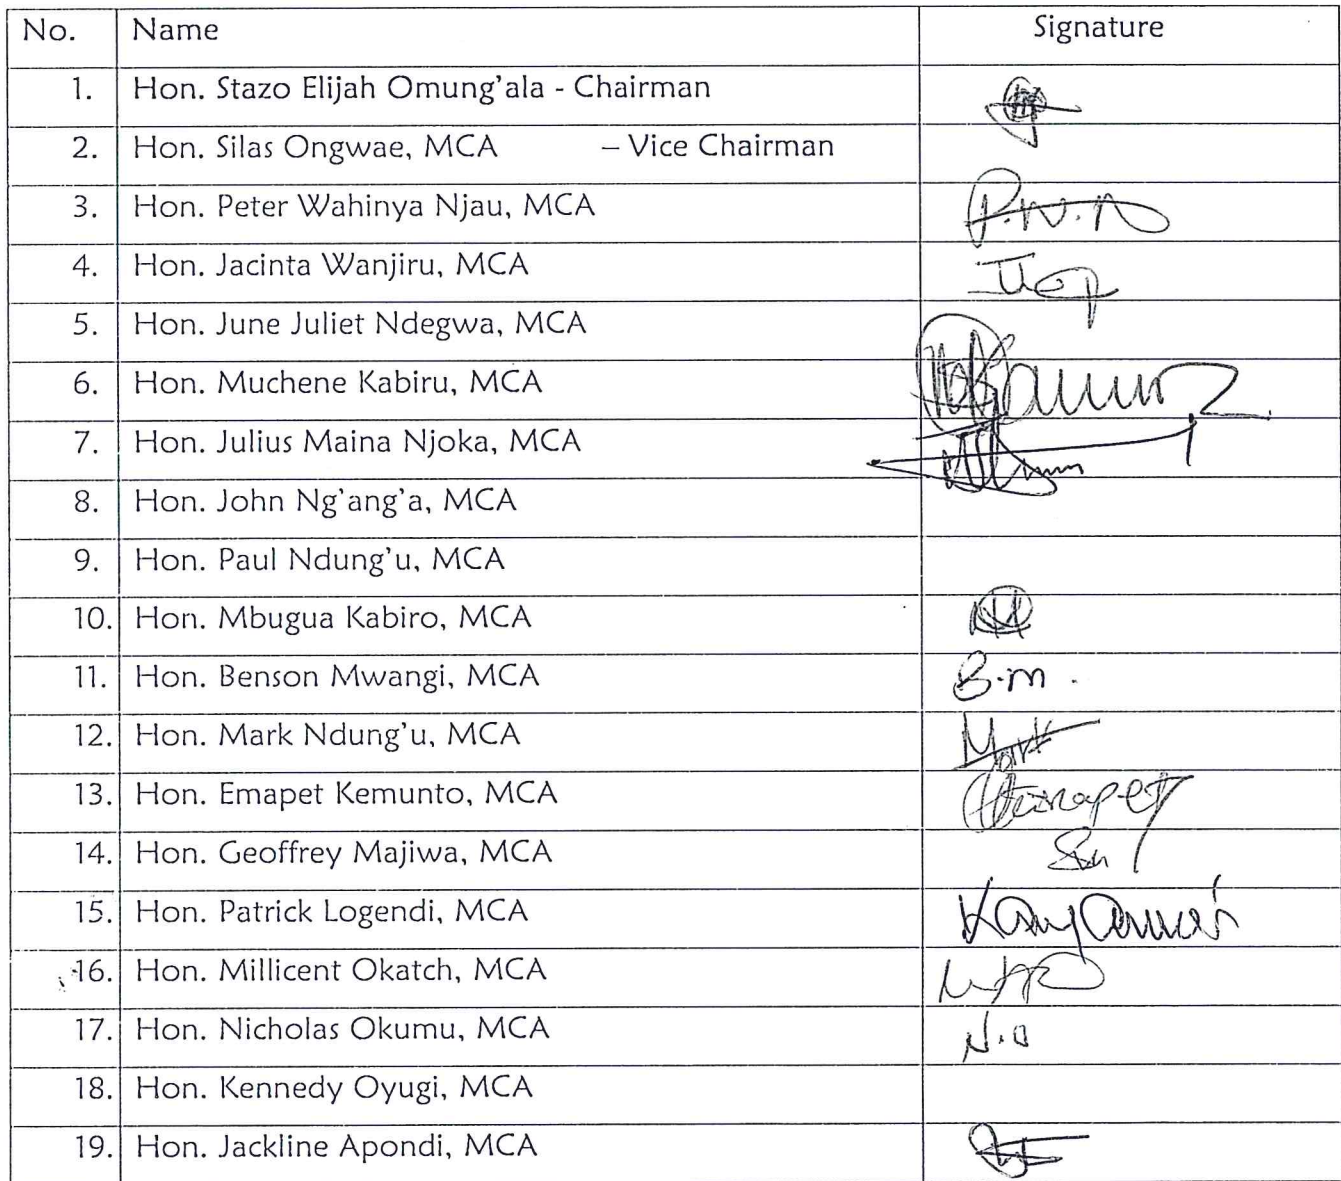 No. Name Signature
1. Hon. Stazo Elijah Omung'ala - Chairman
2. Hon. Silas Ongwae, MCA – Vice Chairman
3. Hon. Peter Wahinya Njau, MCA P.W.N
4. Hon. Jacinta Wanjiru, MCA
5. Hon. June Juliet Ndegwa, MCA
6. Hon. Muchene Kabiru, MCA
7. Hon. Julius Maina Njoka, MCA
8. Hon. John Ng'ang'a, MCA
9. Hon. Paul Ndung'u, MCA
10. Hon. Mbugua Kabiro, MCA
11. Hon. Benson Mwangi, MCA B.m.
12. Hon. Mark Ndung'u, MCA Mark
13. Hon. Emapet Kemunto, MCA
14. Hon. Geoffrey Majiwa, MCA
15. Hon. Patrick Logendi, MCA
16. Hon. Millicent Okatch, MCA
17. Hon. Nicholas Okumu, MCA N.O
18. Hon. Kennedy Oyugi, MCA
19. Hon. Jackline Apondi, MCA